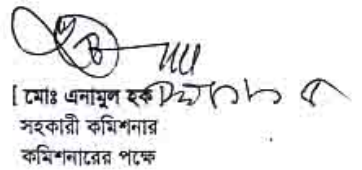 [ মোঃ এনামুল হক
সহকারী কমিশনার
কমিশনারের পক্ষে